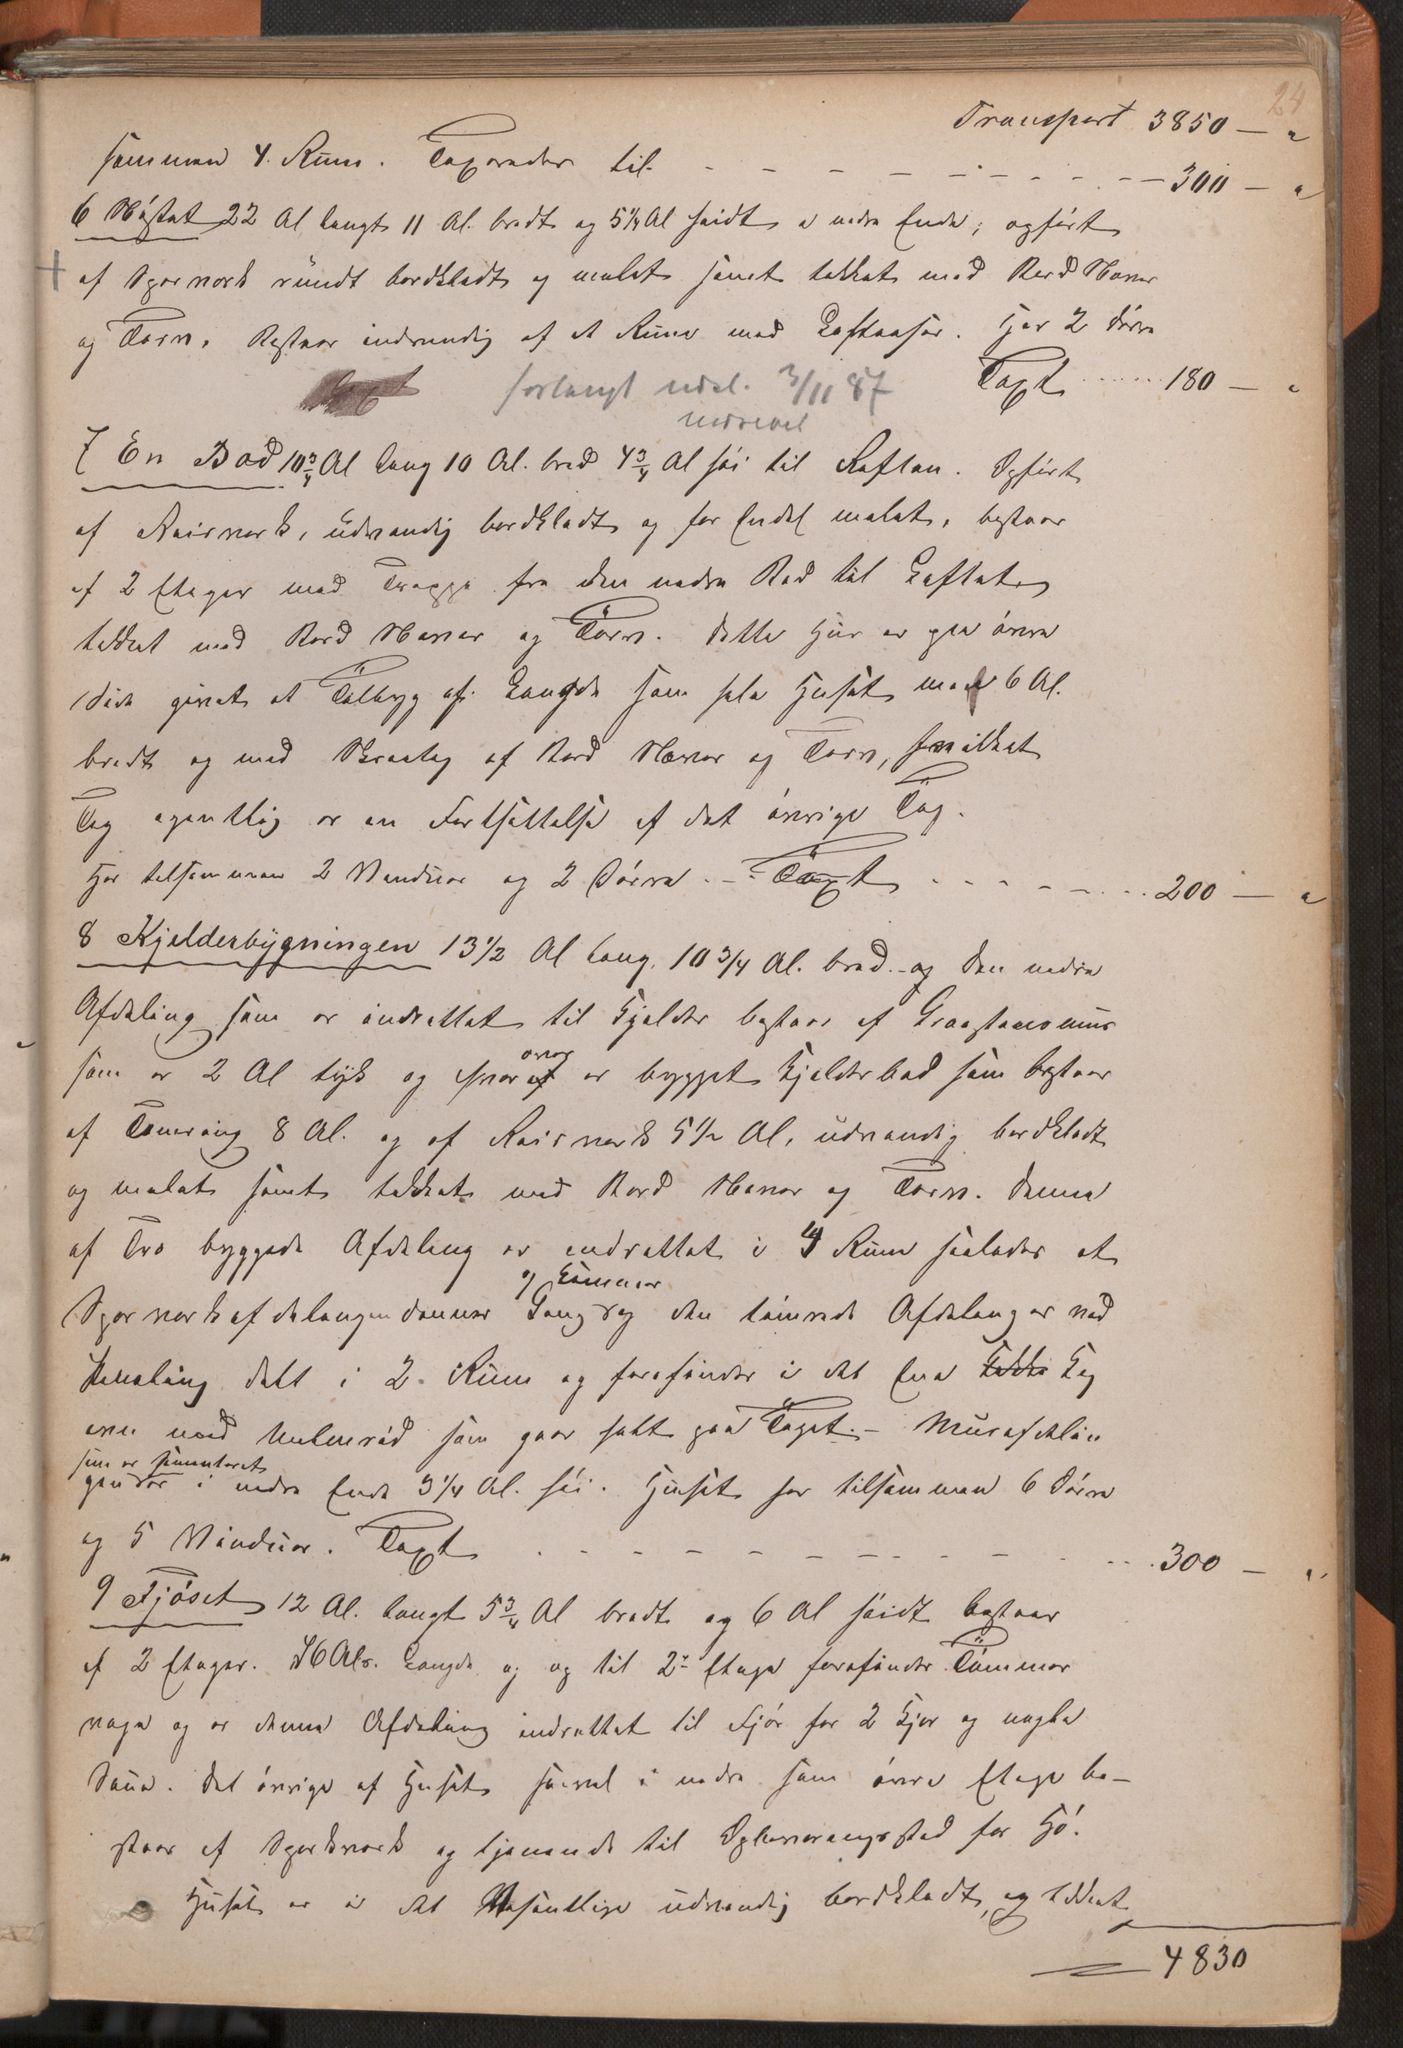 24
Transport 3850 — "
sammen 4 Rum. Taxeredes til - - - - - - - - 300 — "
6 Nøstet 22 Al langt 11 Al. bredt og 5¼ Al høidt i nedre Ende; opført
af Sperverk rundt bordklædt og malet samt tækket med Bord Næver
og Torv. Bestaar indvendig af et Rum med Loftaaser. Har 2 Døre
forlangt udel. 3/11 87 Taxt ..... 180 — "
7 En Bod 10¾ Al lang 10 Al. bred 4¾ Al høi til Raften. Opført
af Reisverk, udvendig bordklædt og for Endel malet, bestaar
af 2 Etager med Trappe fra den nedre Bod til Loftet
tækket med Bord Næver og Torv. Dette Hus er paa øvre
Side givet et Tilbyg af Længde som hele Huset med 6 Al.
bredt og med Skraatag af Bord Næver og Torv, hvilket
Tag egentlig er en Fortsættelse af det øvrige Tag.
Har tilsammen 2 Vinduer og 2 Døre - Taxt - - - - - 200 — "
8 Kjelderbygningen 13½ Al lang, 10 3/4 Al. bred - og den nedre
Afdeling som er indrettet til Kjelder bestaar af Graastensmur
som er 2 Al tyk og hvorover er bygget Kjelderbod som bestaar
af Tømring 8 Al. og af Reisverk 5½ Al, udvendig bordklædt
og malet samt tækket med Bord Næver og Torv. Denne
af Træ byggede Afdeling er indrettet i 4 Rum saaledes at
og Kammer
Sperverksafdelingen danner Gang og den tømrede Afdeling er ved
Paneling delt i 2 Rum og forefindes i det Ene Kak
ovn med Malmrør som gaar halt paa Taget. - Murafdelin
som er sementeret
gen er i nedre Ende 3¼ Al. høi. Huset har tilsammen 6 Døre
og 5 Vinduer. Taxt - - - - - - - - - - 300 — "
9 Fjøset 12 Al. langt 5¾ Al bredt og 6 Al høidt bestaar
af 2 Etager. I 6 Als. Længde og op til 2den Etage forefindes Tømmer
væge og er denne Afdeling indrettet til Fjøs for 2 Kjør og nogle
Saue. Det øvrige af Huset saavel i nedre som øvre Etage be-
staar af Sperkverk og tjenende til Opbevaringssted for Hø.
Huset er i det Væsentlige udvendig bordklædt, og tækket
4830